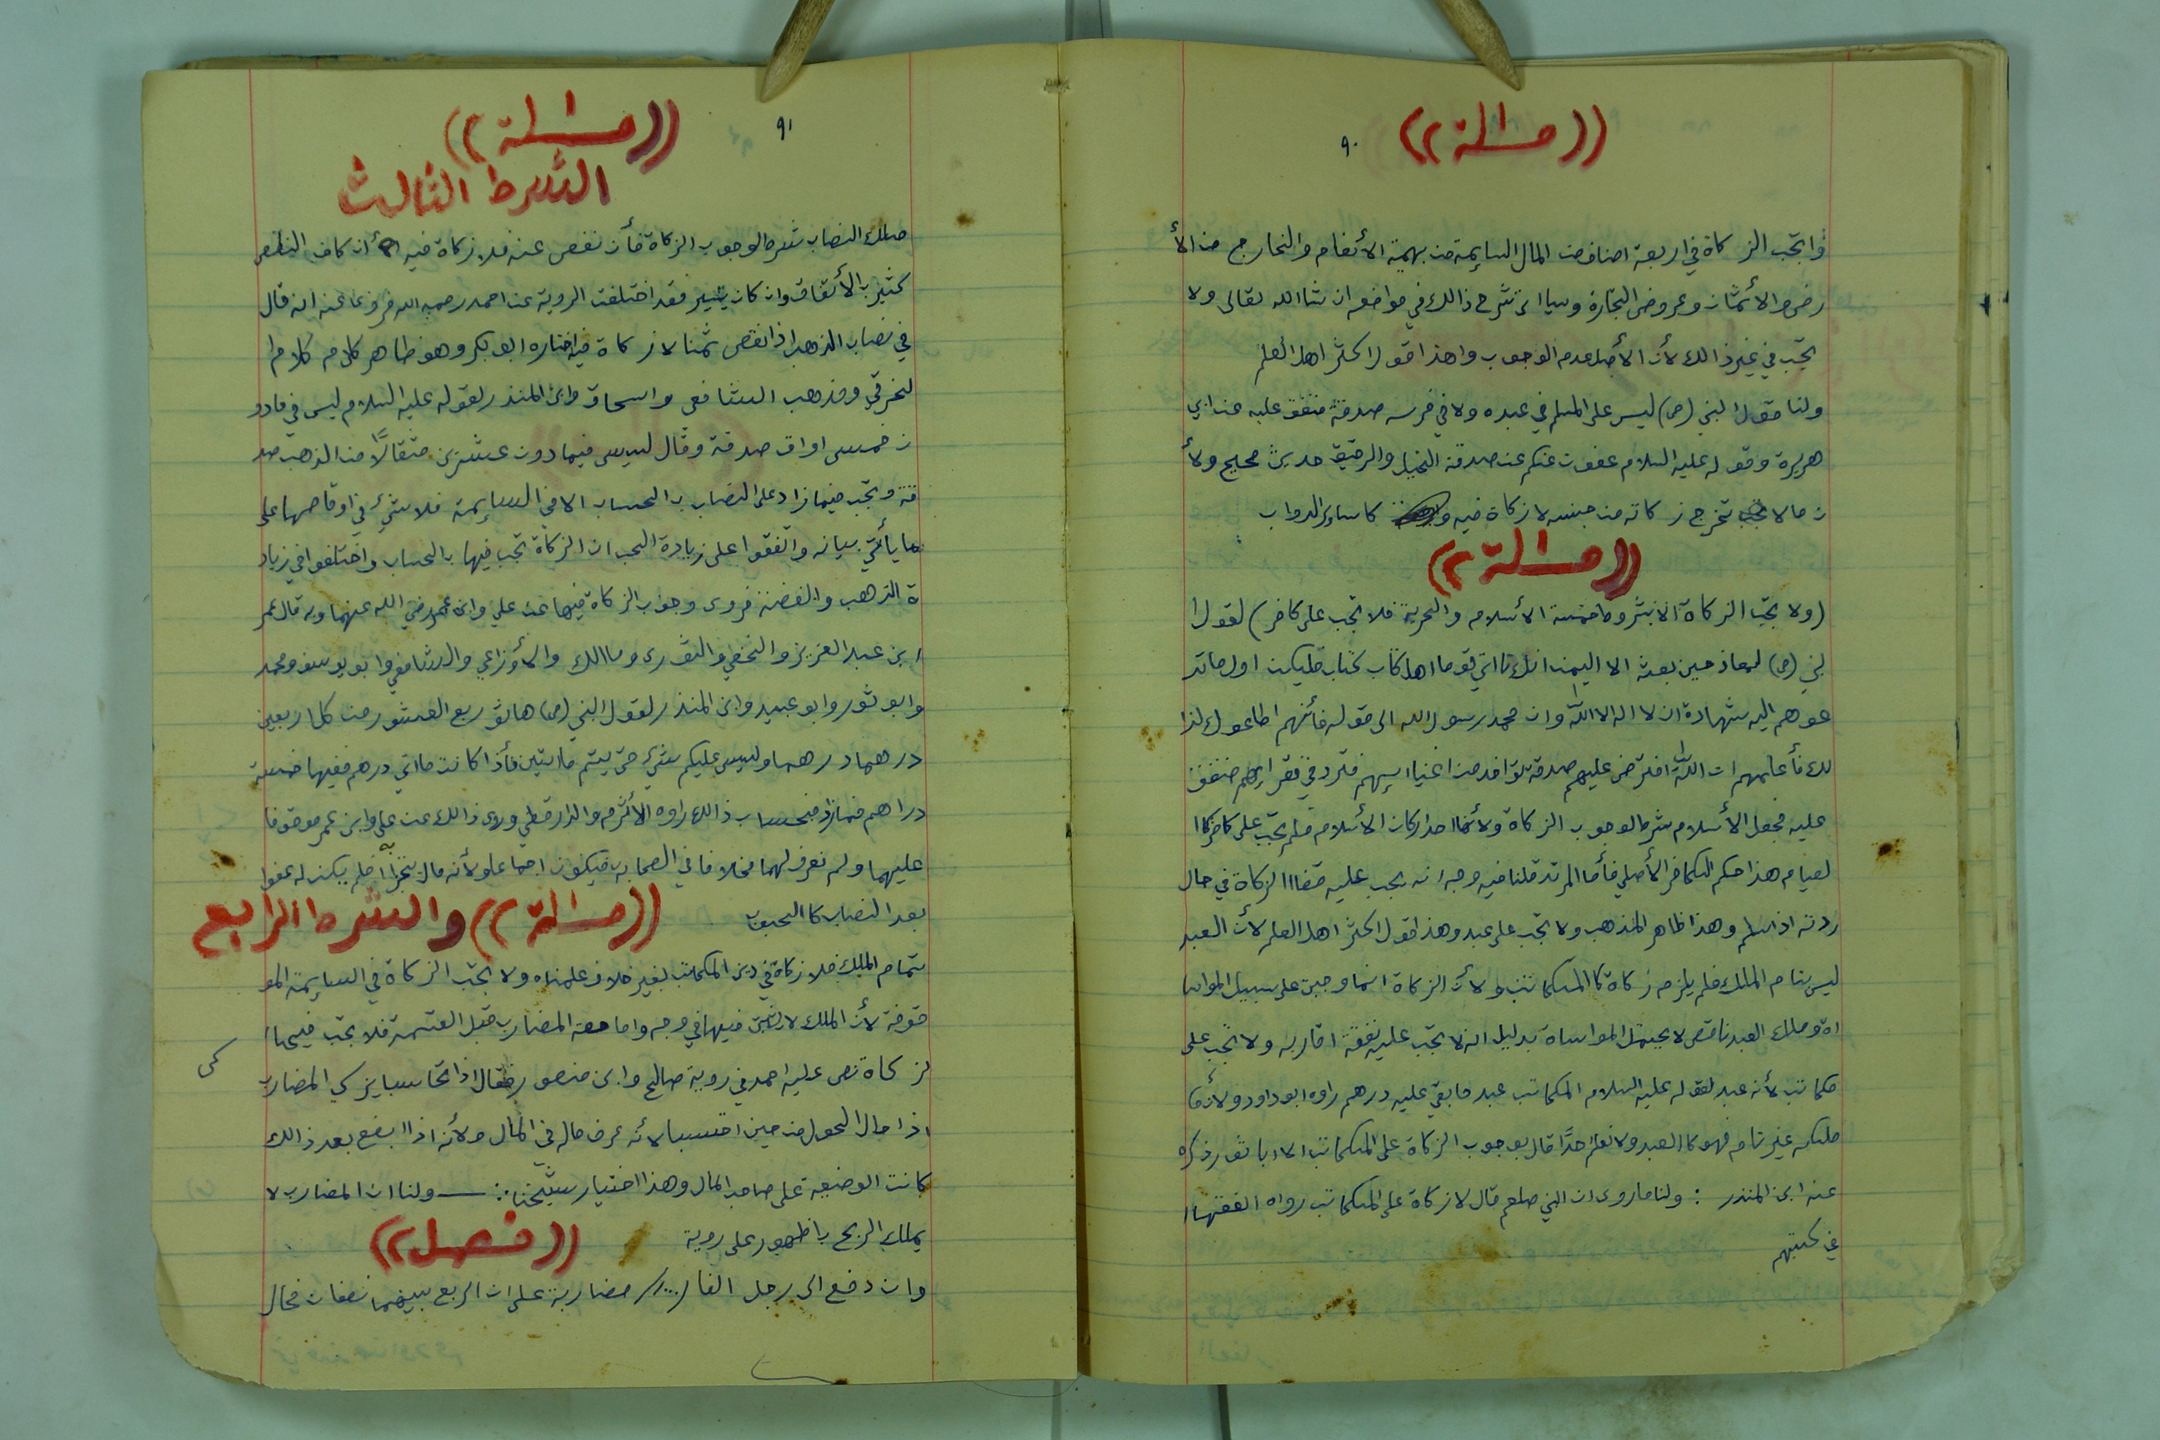 ٩٠
((مسالة))
وا تجب الز كاة في اربعة اصناف من المال السايمة من بهيمة الأنعام والخارج من الأ
رض والأثمان وعروض التجارة وسياا تي شرح ذالك في مواضعه ان شاالله تعالى ولا
يجب في غير ذالك لأن الأصل عدم الوجوب واهذا قول اكثر اهل العلم
ولنا قول النبي (ص) ليس على المسلم في عبده ولا في فرسه صدقة متفق عليه عن ابي
هريرة وقوله عليه السلام عفوت عنكم عن صدقة الخيل والرقيق حديث صحيح ولأ
ن ما لا تخرج ز كاته من جنسه لا زكاة فيه كاساير الدواب
((مسالة))
(ولا يجب الز كاة الا بشروط خمسة الأسلام والحرية فلا تجب على كافر) لقول ا
لنبي (ص) لمعاذ حين بعثه الا اليمن انك تااتي قوما اهل كتاب فليكن اول ما تد
عوهم اليه شهادة ان لا اله الا الله وان محمد رسول الله الى قوله فأنهم اطاعوك لذا
لك فأعلمهم ان الله افترض عليهم صدقة تؤاخذ من اغنياايهم فترد في فقراإهم متفق
عليه فجعل الأسلام شرط لوجوب الز كاة ولأنها احد اركان الأسلام فلم تجب على كافر كا
لصيام هذا حكم الكافر الأصلي فأما المرتد قلنا فيه وجه انه يجب عليه قضاا الزكاة في حال
ردته اذا سلم وهذا ظاهر المذهب ولا تجب على عبد وهذ اقول اكثر اهل العلم لأن العبد
ليس بتام الملك فلم يلزمه زكاة كا المكاتب ولأن الز كاة انما وجبت على سبيل المواسا
اة وملك العبد ناقص لا يحتمل المواساة بدليل انه لا تجب عليه نفقة اقاربه ولا تجب على
مكاتب لأنه عبد لقوله عليه السلام المكاتب عبد ما بقي عليه درهم راوه ابو داود ولأن
ملكه غير تام فهو كا العبد ولا نعلم احدًا قال بوجوب الز كاة على المكاتب الا ابا ثور ذكره
عنه ابن المنذر : ولنا ما روى ان النبي صلعم قال لا ز كاة على المكاتب رواه الفقهاا
في كتبهم
٩١
((مسئلة))
الشرط الثالث
ملك النصاب شرط لوجوب الزكاة فأن نقص عنه فلا زكاة فيه ان كان النقص
كثير با الأتفاق وان كان يسير فقد اختلفت الروية عن احمد رحمه الله فروي عنه انه قال
في نصاب الذهب اذا نقص ثمنا لا ز كاة فيه اختاره ابو بكر وهو ظاهر كلام كلام ا
لخرقي ومذهب الشافعي واسحاق وابن المنذر لقوله عليه السلام ليس في مادو
ن خمس اواق صدقة وقال ليس فيما دون عشرين مثقالًا من الذهب صد
قة و تجب فيما زاد على النصاب با الحساب الا في السايمة فلا شيئ في اوقاصها على
ما يأتي بيانه واتفقوا على زيادة الحب ان الز كاة تجب فيها با الحساب واختلفوا في زياد
ة الذهب والفضة فروى وجوب الز كاة فيها عن علي وابن عمر رضي الله عنهما وبه قال عمر
ابن عبد العزيز والنخعي والثورى وماالك والأوزاعي والشافعي وابو يوسف ومحمد
وابو ثور وابو عبيد وابن المنذر لقول النبي (ص) هاتو ربع العشور من كل اربعين
درهما درهما وليس عليكم شيئ حتى يتم مااتين فأذا كانت مااتي درهم ففيها خمسة
دراهم فما زاد فبحساب ذالك راوه الأثرم والدارقطي وروى ذالك عن علي وابن عمر موقوفا
عليهما ولم نعرف لهما مخلافا في الصحابه فيكون اجماعا ولأنه مال يتجزأ فلم يكن له عفوا
بعد النصاب كا الحبوب ((مسالة)) والشرط الرابع
تمام الملك فلا زكاة في دين المكاتب بغير خلاف علمناه ولا يجب الز كاة في السايمة المو
قوفة لأن الملك لا يثبت فيها في وجه واما حصة المضارب قبل القسمة فلا يجب فيها ا
لز كاة نص عليه احمد في روية صالح وابن منصور فقال اذا تحاسبا يزكي المضارب
كى
اذا حال الحول من حين احتسبا لأنه عرف ماله في المال ولأنه اذاا بضع بعد ذالك
كانت الوضيعة على صاحب المال وهذا اختيار شيخنا :- ولنا ان المضارب لا
يملك الربح باظهور على روية ((فصل))
وان دفع الى رجل الفا /١٠٠٠/ مضاربة على ان الربح بينهما نصفان فحال